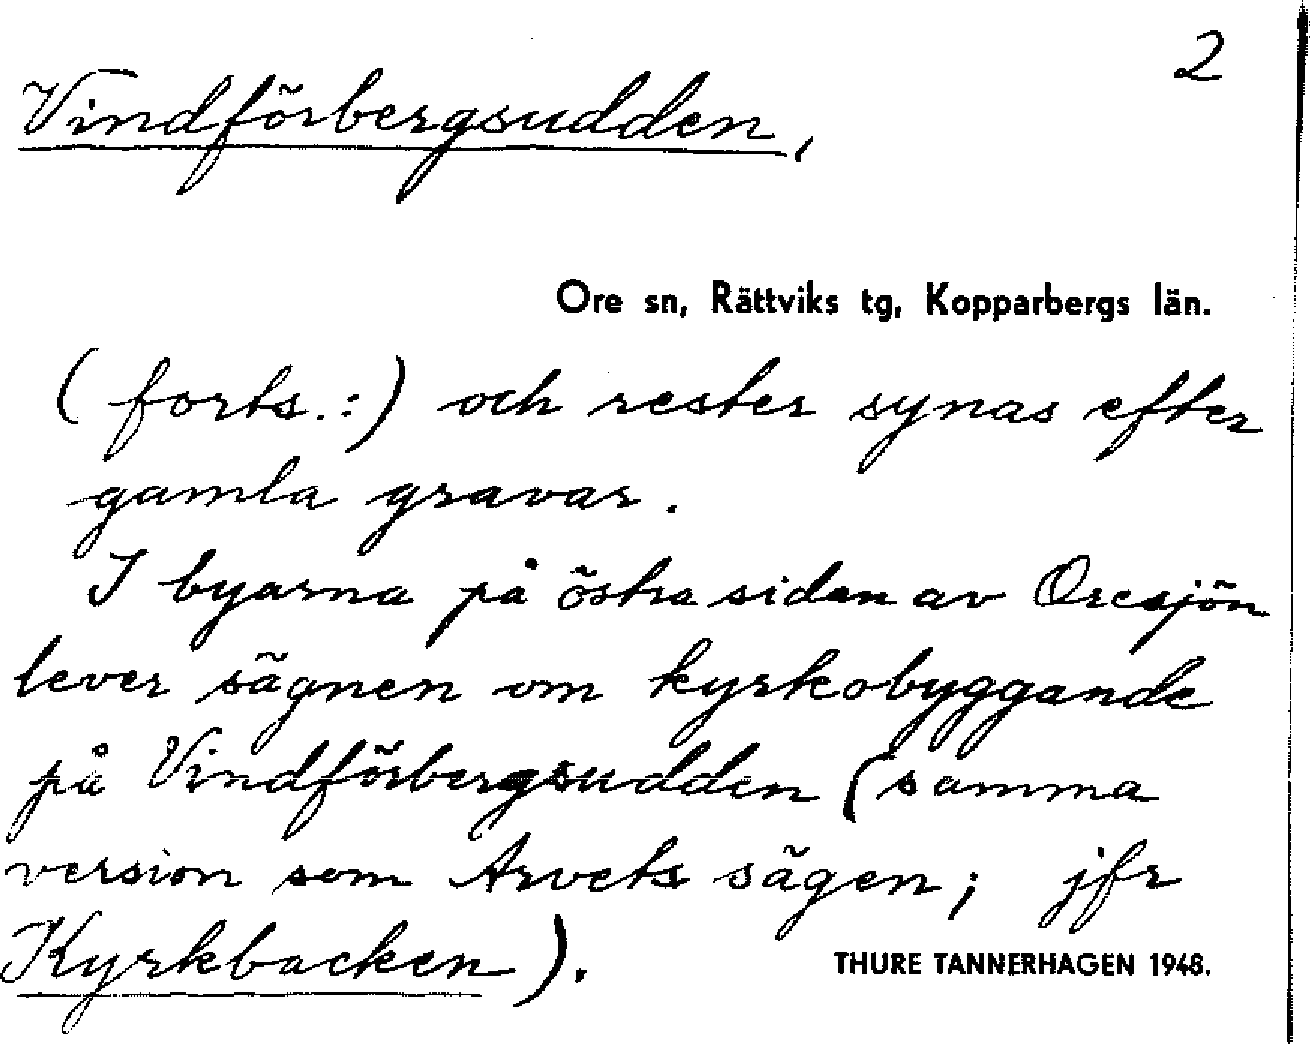 2
Vindförbergsudden,
Ore sn, Rättviks tg, Kopparbergs län.
(forts.:) och rester synas efter
gamla gravar.
I byarna på östra sidan av Oresjön
lever sägnen om kyrkobyggande
på Vindförbergsudden (samma
version som Arvets sägen; jfr
Kyrkbacken).
THURE TANNERHAGEN 1948.